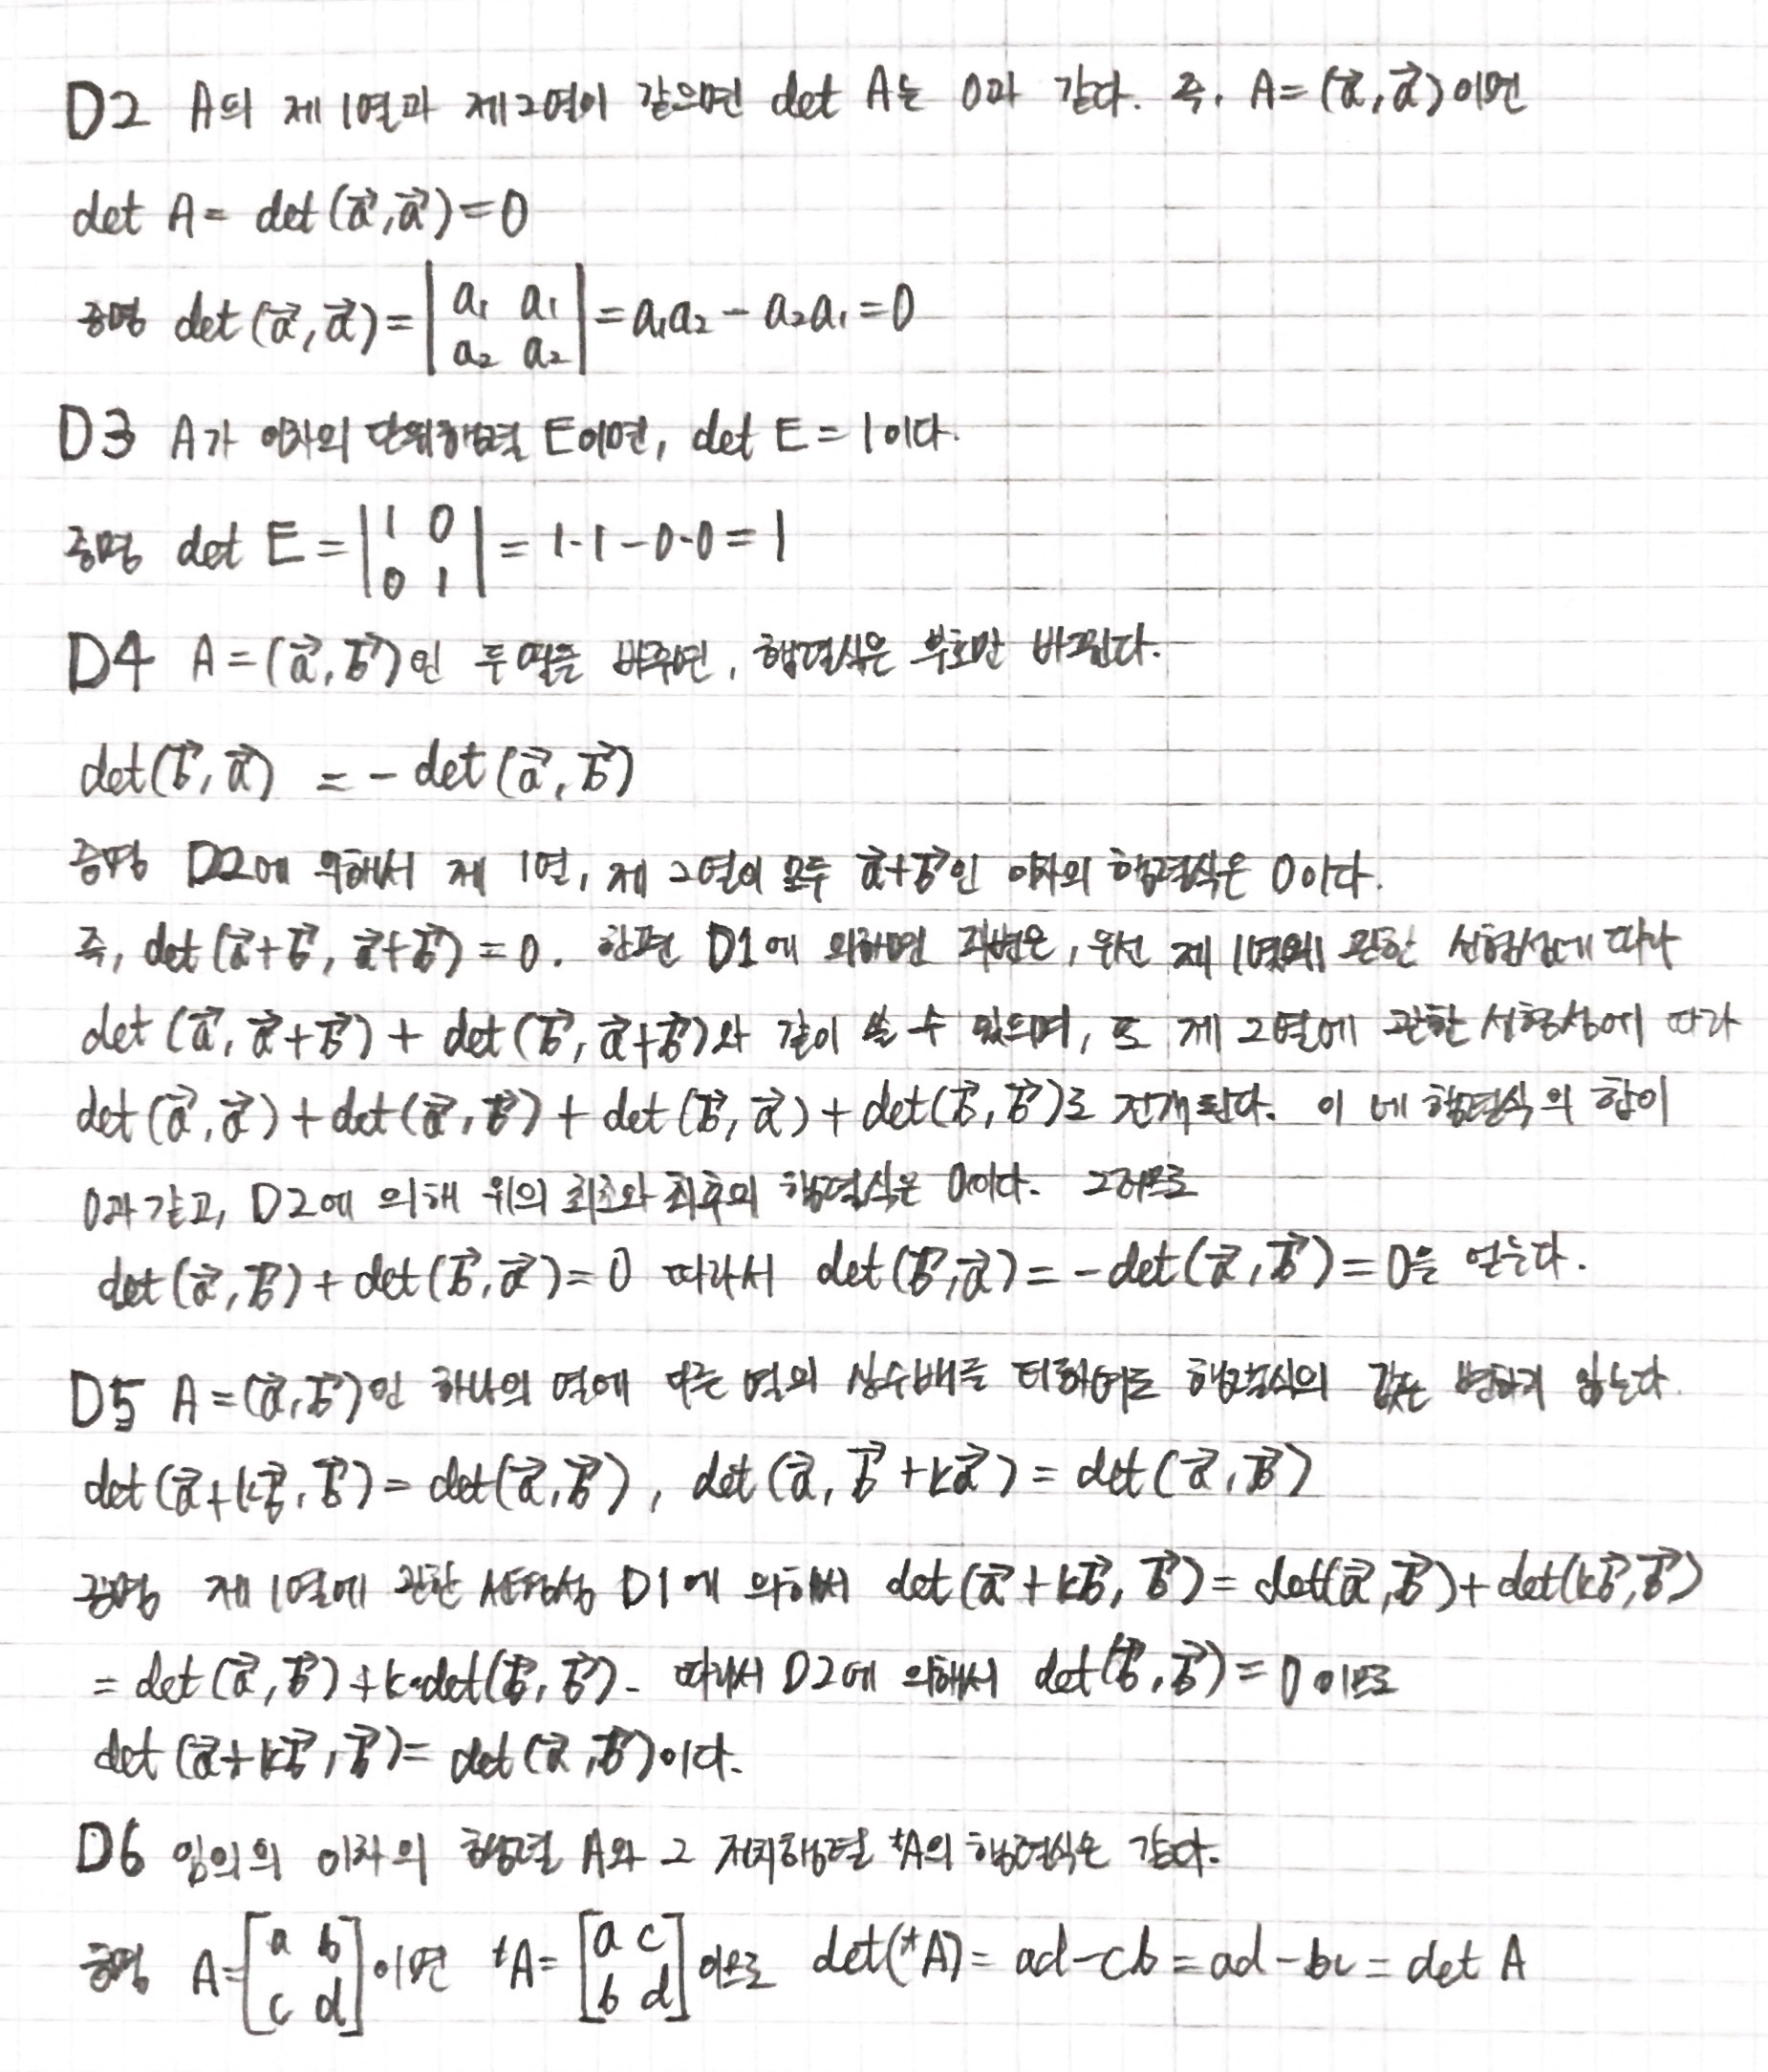 D2 A의 제 1열과 제 2열이 같으면 det A는 0과 같다. 즉, A = (a⃗, a⃗) 이면
det A = det (a⃗, a⃗) = 0
증명 det (a⃗, a⃗) = | a₁ a₁ ; a₂ a₂ | = a₁a₂ - a₂a₁ = 0
D3 A가 이차의 단위행렬 E이면, det E = 1이다.
증명 det E = | 1 0 ; 0 1 | = 1·1 - 0·0 = 1
D4 A = (a⃗, b⃗)인 두 열을 바꾸면, 행렬식은 부호만 바뀐다.
det(b⃗, a⃗) = - det (a⃗, b⃗)
증명 D2에 의해서 제 1열, 제 2열이 모두 a⃗+b⃗인 이차의 행렬식은 0이다.
즉, det (a⃗+b⃗, a⃗+b⃗) = 0. 한편 D1에 의하면 좌변은, 우선 제 1열에 관한 선형성에 따라
det (a⃗, a⃗+b⃗) + det (b⃗, a⃗+b⃗)와 같이 쓸 수 있으며, 또 제 2열에 관한 선형성에 따라
det (a⃗, a⃗) + det (a⃗, b⃗) + det (b⃗, a⃗) + det (b⃗, b⃗)로 전개된다. 이 네 행렬식의 합이
0과 같고, D2에 의해 위의 최초와 최후의 행렬식은 0이다. 그러므로
det (a⃗, b⃗) + det (b⃗, a⃗) = 0 따라서 det (b⃗, a⃗) = - det (a⃗, b⃗) = 0을 얻는다.
D5 A = (a⃗, b⃗)인 하나의 열에 다른 열의 상수배를 더하여도 행렬식의 값은 변하지 않는다.
det (a⃗+kb⃗, b⃗) = det (a⃗, b⃗), det (a⃗, b⃗+ka⃗) = det (a⃗, b⃗)
증명 제 1열에 관한 선형성 D1에 의해서 det (a⃗+kb⃗, b⃗) = det(a⃗, b⃗) + det(kb⃗, b⃗)
= det (a⃗, b⃗) + k·det (b⃗, b⃗). 따라서 D2에 의해서 det (b⃗, b⃗) = 0 이므로
det (a⃗+kb⃗, b⃗) = det (a⃗, b⃗)이다.
D6 임의의 이차의 행렬 A와 그 전치행렬 ᵗA의 행렬식은 같다.
증명 A = [ a b ; c d ] 이면 ᵗA = [ a c ; b d ] 이므로 det(ᵗA) = ad - cb = ad - bc = det A